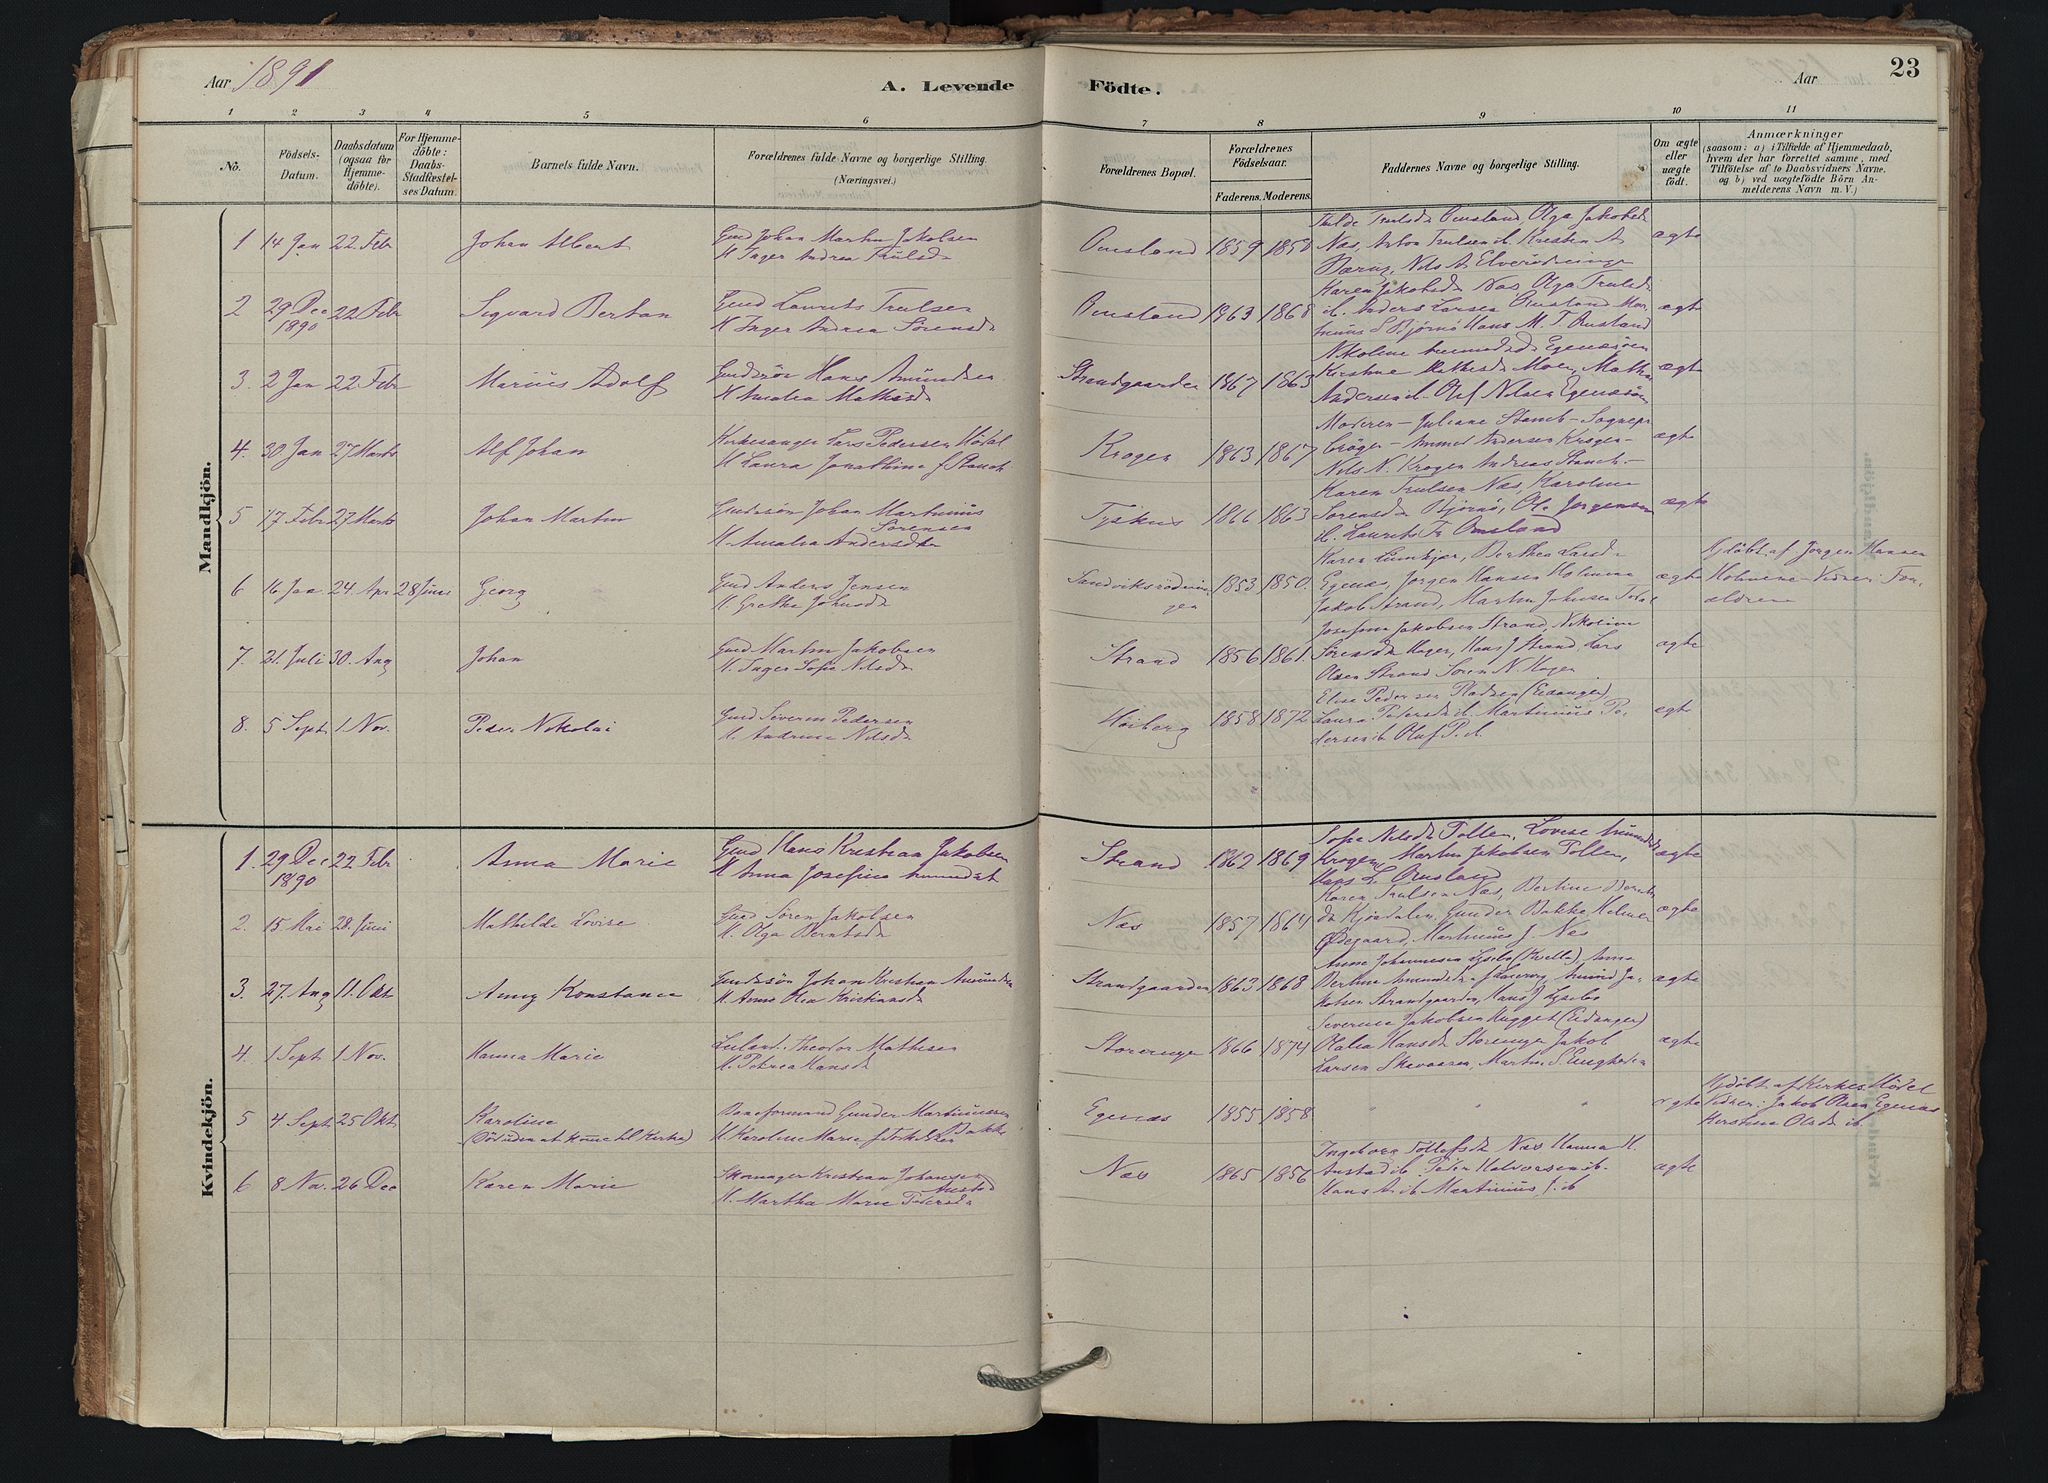 Aar 1891
A. Levende Födte.
Aar
23
1 2 3 4 5 6 7 8 9 10 11
No.
Födsels-Datum.
Daabsdatum (ogsaa for Hjemme-döbte).
For Hjemme-döbte: Daabs-Stadfæstel-ses Datum.
Barnets fulde Navn.
Forældrenes fulde Navne og borgerlige Stilling. (Næringsvei.)
Forældrenes Bopæl.
Forældrenes Födselsaar.
Faderens. Moderens.
Faddernes Navne og borgerlige Stilling.
Om ægte eller uægte födt.
Anmærkninger
(saasom: a) i Tilfælde af Hjemmedaab,
hvem der har forrettet samme, med
Tilföielse af to Daabsvidners Navne.
og b) ved uægtefödte Börn An-
melderens Navn m. V.)
Mandkjön.
1 14 Jan 22 Febr Johan Albert
Gmd Johan Martin Jakobsen
H Inger Andrea Trulsd
Omsland 1859 1850
Trulsd Omsland, Olga Jakobsd
Næs, Anton Trulsen ib Kresten A
ægte
2 29 Dec 1890 22 Febr Sigvard Bertan
Gmd Laurits Trulsen
H Inger Andrea Sörensd
Omsland 1863 1868
Karen Jakobsd Næs, Olga Trulsd
ib Anders Larsen Omsland Mar-
tinius S Bjørnø Hans M. T. Omsland
ægte
3 2 Jan 22 Febr Marius Adolf
Gmdssøn Hans Amundsen
H Amalia Mathisd
Strandgaarden 1867 1863
Kirstine Mathisd Moen, Mathis
Andersen ib Olaf Nilsen Egenæsöen
ægte
4. 30 Jan 27 Marts Alf Johan
Kirkesanger Lars Pedersen Hödal
H Laura Jonathine f. Stamb
Krogen 1863 1867
Moderen - Juliane Stamb - Sognepr
Crøger - Ammed Andersen Krogen -
Nils N. Krogen Andreas Stamb. -
ægte
5 17 Febr 27 Marts Johan Martin
Gmdssøn Johan Martinius
Sörensen
H. Amalia Andersdtr
1866 1863
Karen Trulsen Næs, Karoline
Sørensd Bjørnø, Ole Jørgensen
ib. Laurits Tr Omsland
ægte
6 16 Jan 24. Apr 28 Juni Georg
Gmd Anders Jensen
H. Grethe Johnsd
Sandviksrödnin-
gen
1853 1850.
Karen Lunkjær, Berthea Larsd
Egenæs, Jørgen Hansen Holmene
Jakob Strand, Martin Johnsen
ægte
Hjdöbt af Jørgen Hansen
Holmene Vidner: For-
ældrene
7. 21. Juli 30. Aug Johan
Gmd Martin Jakobsen
H. Inger Sofie Nilsd
Strand 1856 1861.
Josefine Jakobsen Strand, Nikoline
Sørensd Hagen, Hans J Strand, Lars
Olsen Strand Søren N. Hagen
ægte
8. 5 Sept 1 Nov. Peder Nikolai
Gmd Severin Pedersen
H. Andrine Nilsd
Høiberg 1858 1872
Elise Pedersen Pladsen (Eidanger)
Laura Pedersd ib. Martinius Pe-
dersen ib Oluf P. ib.
ægte
Kvindekjön.
1. 29 Dec 1890 22 Febr Anna Marie
Gmd Hans Kristian Jakobsen
H Anna Josefine Amundsdt
Strand 1862 1869
Sofie Nilsd Tollen, Lovise Amundsd
Krogen, Martin Jakobsen Tollen,
Hans L. Omsland
ægte
2. 15 Mai 28. Juni Mathilde Lovise
Gmd Søren Jakobsen
H. Olga Berntsd
Næs 1857 1864
Karen Trulsen Næs, Bertine Bernts
d Kjødalen, Gunder Bakke Helmen
Ødegaard, Martinius J. Næs
ægte
3. 27. Aug 11. Okt Anny Konstance
Gmdssøn Johan Kristian Amundsen
H Anne Thea Kristiansd
Strandgaarden 1863 1868
Anne Johannesen Lysebo (Kvelle), Anna
Bertine Amundsd, Amund Ja-
kobsen Strandgaarden, Hans J Lysebo
ægte
4. 1 Sept 1 Nov. Hanna Marie
Leiland. Theodor Mathisen
H. Petrea Hansd
Storeninge 1866 1874
Severine Jakobsen Hugget (Eidanger)
Olalia Hansd Storeninge Jakob
Larsen Skevaasen, Martin S. Enghaven
ægte
5 4 Sept 25 Okt Karoline
(Döde uden at komme til Kirke)
Baneformand Gunder Martinussen
Bakke
H Karoline Marie f.
Egenæs 1855 1858
" " "
ægte
Hjdöbt af Kirkes. Hödal
Vidner: Jakob Olsen Egenæs
Kirstine Olsd ib.
6 8 Nov. 26 Dec Karen Marie
Skomager Kristian Johansen
Anstad
H. Martha Marie Pedersd
Næs 1865 1856
Ingeborg Tollefsd Næs Hanna H.
Anstad ib. Peter Halvorsen ib.
Hans A. ib Martinius J. ib
ægte